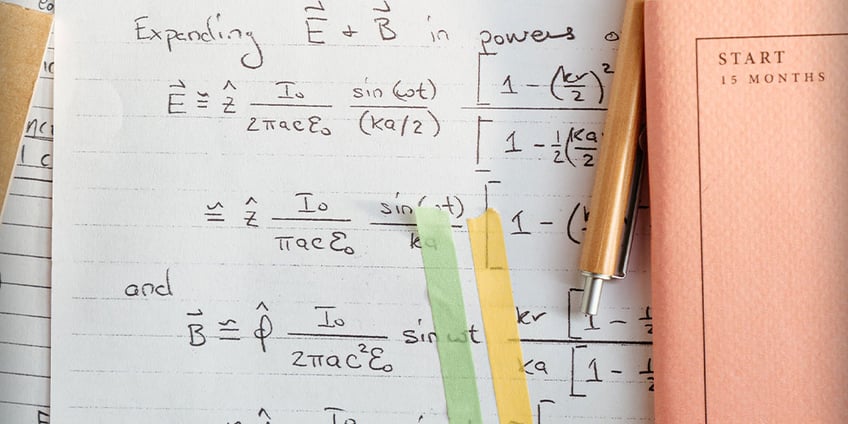 Expanding E⃗ + B⃗ in powers o
E⃗ ≅ ẑ I₀/(2πacε₀) sin(ωt)/(ka/2) [1 - (kr/2)²/[1 - ½(ka/2
≅ ẑ I₀/(πacε₀) sin(ωt)/ka [1 - (
and
B⃗ ≅ φ̂ I₀/(2πac²ε₀) sin ωt kr [1 - ½/ka [1 - ½
I₀
START
15 MONTHS